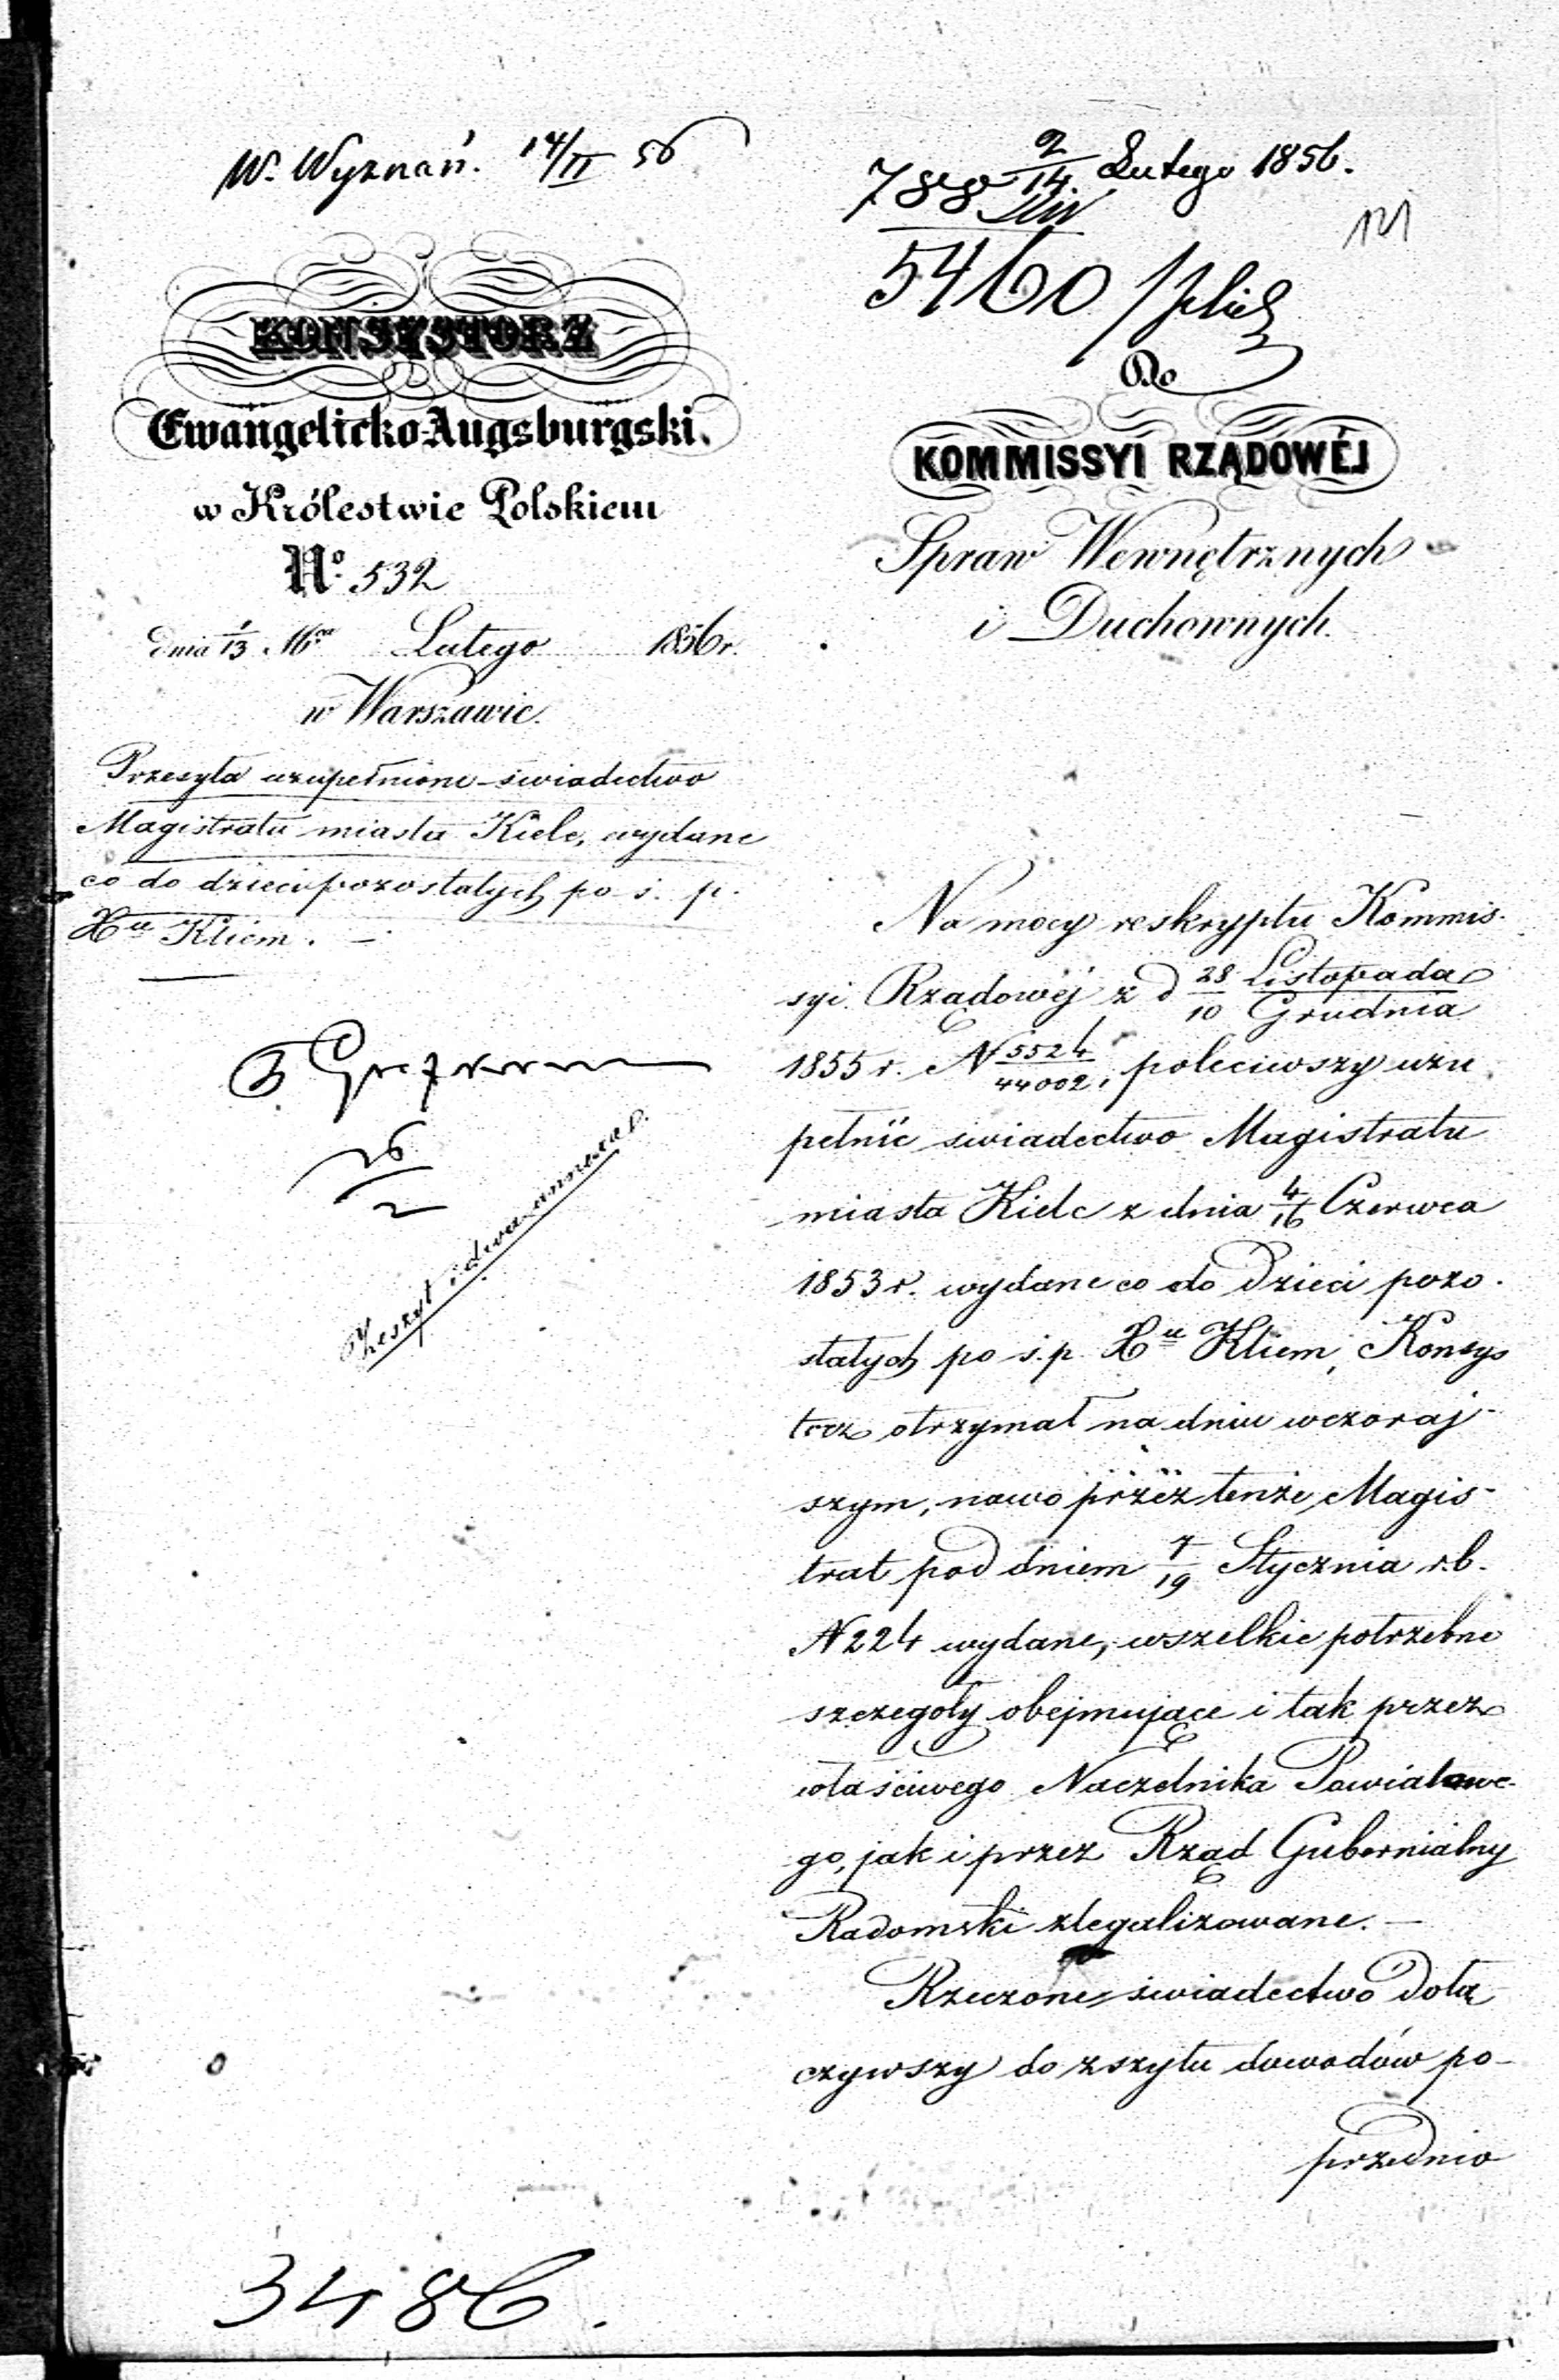 W. Wyznań. 14/II 56
2/14 Lutego 1856.
788
121
5460
KONSYSTORZ
Ewangelicko-Augsburgski.
w Królestwie Polskiem
No. 532
dnia 1/13 Mca Lutego 1856 r.
w Warszawie.
Przesyła uzupełnione świadectwo
Magistratu miasta Kielc, wydane
co do dzieci pozostałych po ś. p.
Xu Kliem. —
26/2
Zeszyt i dwa annexa
3486.
Do
KOMMISSYI RZĄDOWÉJ
Spraw Wewnętrznych
i Duchownych.
Na mocy reskryptu Kommis-
syi Rządowéj z d 28 Listopada / 10 Grudnia
1855 r. N 5524/44002, poleciwszy uzu
pełnić świadectwo Magistratu
miasta Kielc z dnia 4/16 Czerwca
1853 r. wydane co do dzieci pozo-
stałych po ś.p. Xu Kliem, Konsys
torz otrzymał na dniu wczoraj-
szym, nowo przez tenże Magis-
trat pod dniem 7/19 Stycznia r.b.
N 224 wydane, wszelkie potrzebne
szczegóły obejmujące i tak przez
właściwego Naczelnika Powiatowe-
go, jak i przez Rząd Gubernialny
Radomski zlegalizowane. —
Rzeczone świadectwo dołą
czywszy do zszytu dowodów po-
przednio